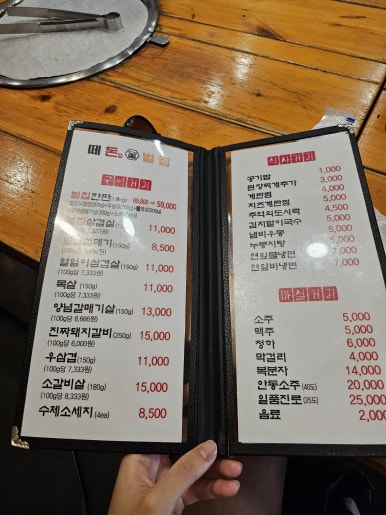 떼돈 벌집
고깃거리
벌집한판 59,000
벌집삼겹살 (150g) 11,000
(100g당 7,333원)
8,500
얼얼이삼겹살 (150g) 11,000
(100g당 7,333원)
목살 (150g) 11,000
(100g당 7,333원)
양념갈매기살 (150g) 13,000
(100g당 8,666원)
진짜돼지갈비 (250g) 15,000
(100g당 6,000원)
우삼겹 (150g) 11,000
(100g당 7,333원)
소갈비살 (180g) 15,000
(100g당 8,333원)
수제소세지 (4ea) 8,500
식사거리
공기밥 1,000
된장찌개추가 3,000
계란찜 3,000
치즈계란찜 5,000
추억의도시락 4,500
김치말이국수 5,000
냄비우동 5,000
누룽지탕 5,000
면일물냉면 7,000
면일비냉면 7,000
마실거리
소주 5,000
맥주 5,000
청하 6,000
막걸리 4,000
복분자 14,000
안동소주 (40도) 20,000
일품진로 (25도) 25,000
음료 2,000